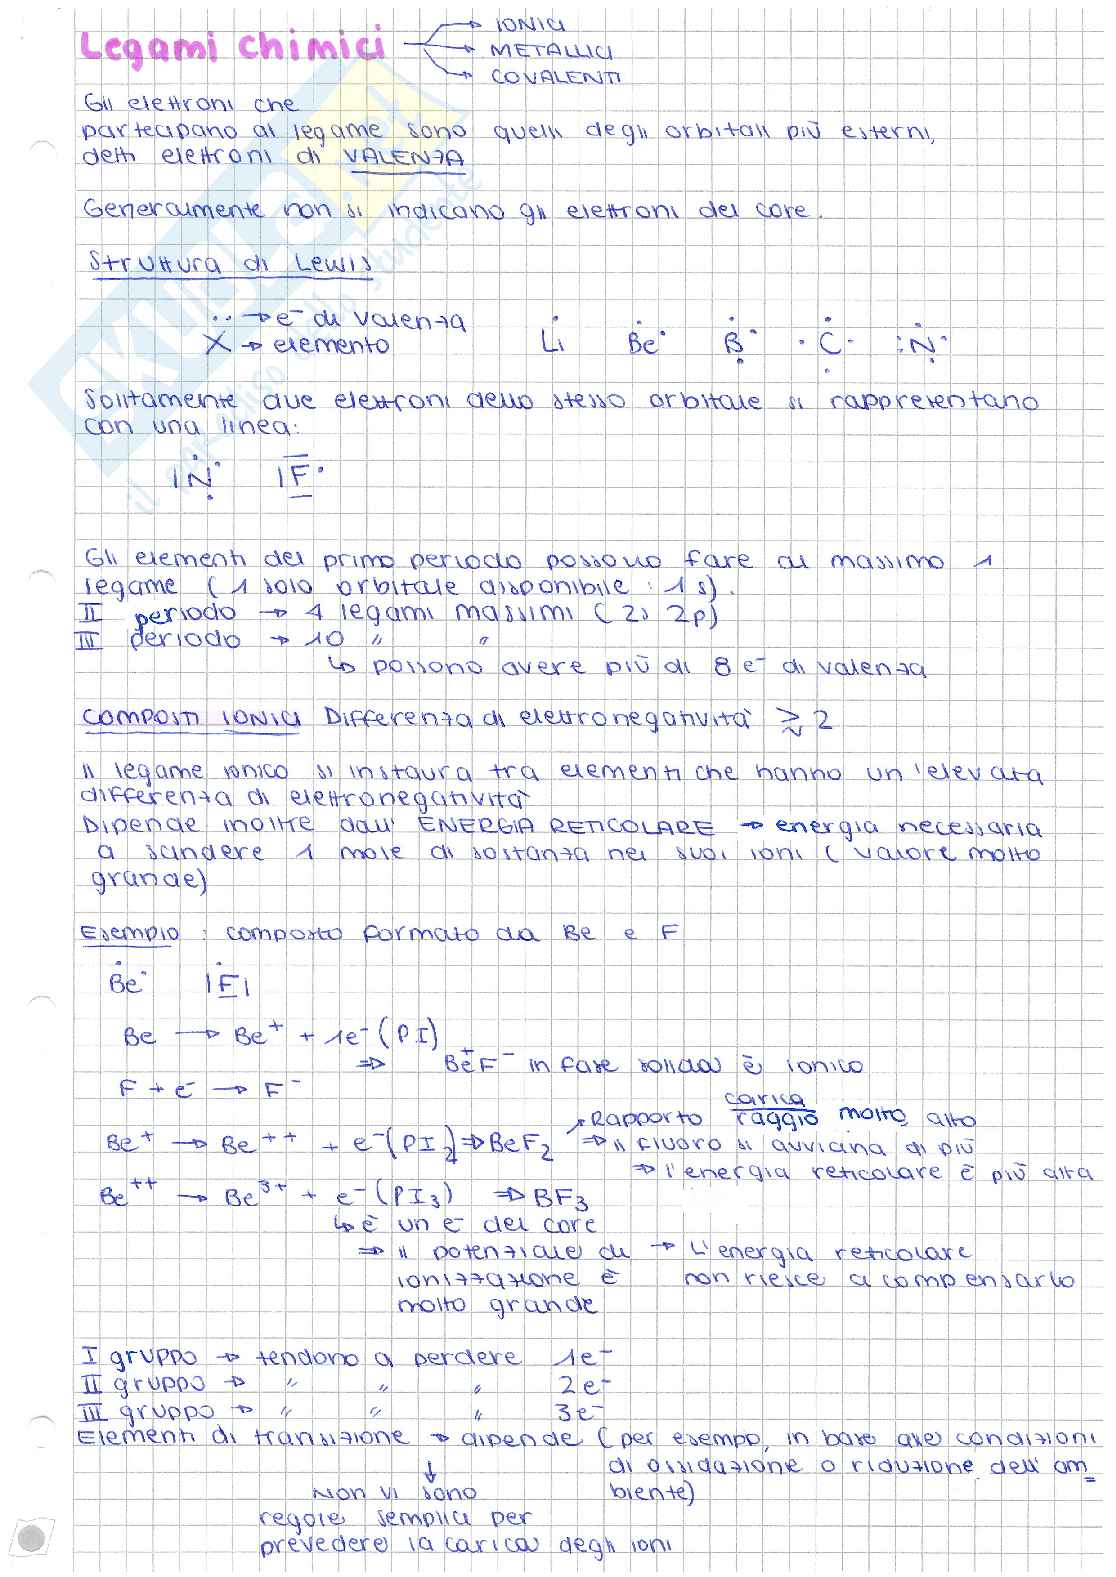 Legami chimici → IONICI
→ METALLICI
→ COVALENTI
Gli elettroni che
partecipano al legame sono quelli degli orbitali più esterni,
detti elettroni di VALENZA
Generalmente non si indicano gli elettroni del core.
Struttura di Lewis
·· → e⁻ di valenza
X → elemento Li· Be: B· ·C· :N·
Solitamente due elettroni dello stesso orbitale si rappresentano
con una linea:
|N· |F·
Gli elementi del primo periodo possono fare al massimo 1
legame (1 solo orbitale disponibile: 1s).
II periodo → 4 legami massimi (2s 2p)
III periodo → 10 " "
↳ possono avere più di 8 e⁻ di valenza
COMPOSTI IONICI Differenza di elettronegatività ≳ 2
Il legame ionico si instaura tra elementi che hanno un'elevata
differenza di elettronegatività
Dipende inoltre dall' ENERGIA RETICOLARE → energia necessaria
a scindere 1 mole di sostanza nei suoi ioni (valore molto
grande)
Esempio: composto formato da Be e F
Be· |F|
Be → Be⁺ + 1e⁻ (PI)
⇒ Be⁺F⁻ in fase solida è ionico
F + e⁻ → F⁻
Rapporto carica/raggio molto alto
Be⁺ → Be⁺⁺ + e⁻ (PI₂) ⇒ BeF₂ ⇒ il fluoro si avvicina di più
⇒ l'energia reticolare è più alta
Be⁺⁺ → Be³⁺ + e⁻ (PI₃) ⇒ BF₃
↳ è un e⁻ del core
⇒ il potenziale di → L'energia reticolare
ionizzazione è non riesce a compensarlo
molto grande
I gruppo → tendono a perdere 1e⁻
II gruppo → " " " 2e⁻
III gruppo → " " " 3e⁻
Elementi di transizione → dipende (per esempio, in base alle condizioni
↓ di ossidazione o riduzione dell'am=
Non vi sono biente)
regole semplici per
prevedere la carica degli ioni
SKUOLA.net
il paradiso dello studente